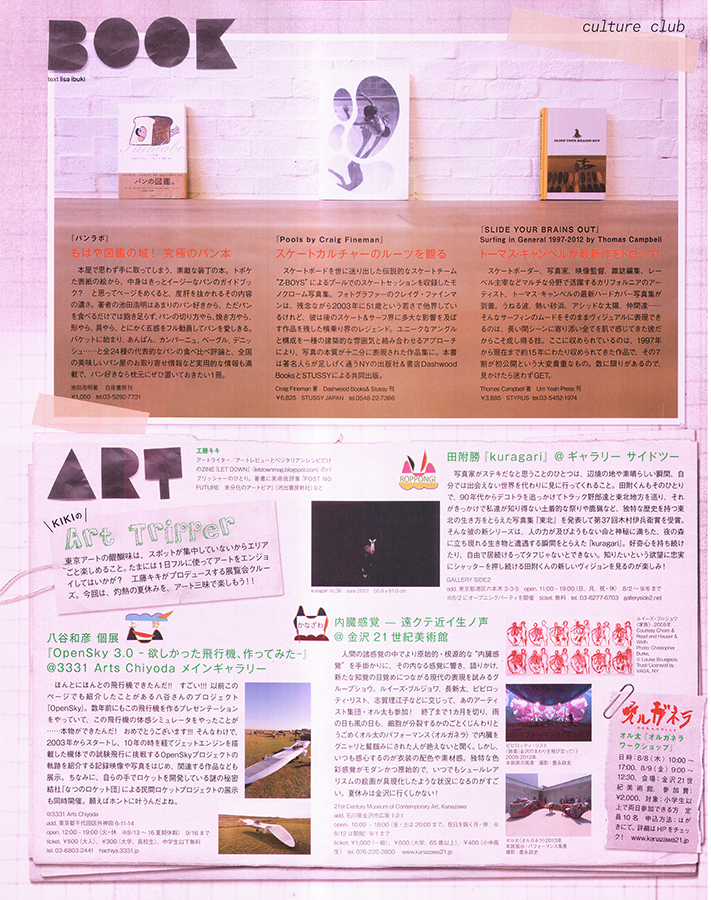 culture club
BOOK
text lisa ibuki
パンの図鑑。
SLIDE YOUR BRAINS OUT
『パンラボ』
もはや図鑑の域! 究極のパン本
本屋で思わず手に取ってしまう、素敵な装丁の本。トボケ
た表紙の絵から、中身はきっとイージーなパンのガイドブッ
ク? と思ってページをめくると、度肝を抜かれるその内容
の濃さ。著者の池田浩明はあまりのパン好きから、ただパン
を食べるだけでは飽き足らず、パンの切り方やら、焼き方やら、
形やら、具やら、とにかく五感をフル動員してパンを愛しきる。
バケットに始まり、あんぱん、カンパーニュ、ベーグル、デニッ
シュ……と全24種の代表的なパンの食べ比べ評論と、全国
の美味しいパン屋のお取り寄せ情報など実用的な情報も満
載で、パン好きなら枕元にぜひ置いておきたい1冊。
池田浩明著 白夜書房刊
¥1,050 tel.03-5292-7731
『Pools by Craig Fineman』
スケートカルチャーのルーツを観る
スケートボードを世に送り出した伝説的なスケートチーム
"Z-BOYS"によるプールでのスケートセッションを収録したモ
ノクローム写真集。フォトグラファーのクレイグ・ファインマ
ンは、残念ながら2003年に51歳という若さで他界してい
るけれど、彼は後のスケート&サーフ界に多大な影響を及ぼ
す作品を残した横乗り界のレジェンド。ユニークなアングル
と構成を一種の建築的な雰囲気と組み合わせるアプローチ
により、写真の本質が十二分に表現された作品集に。本書
は著名人らが足しげく通うNYの出版社&書店Dashwood
BooksとSTUSSYによる共同出版。
Craig Fineman 著 Dashwood Books& Stussy 刊
¥6,825 STUSSY JAPAN tel.0548-22-7366
『SLIDE YOUR BRAINS OUT』
Surfing in General 1997-2012 by Thomas Campbell
トーマス・キャンベルが最新作をドロップ!
スケートボーダー、写真家、映像監督、雑誌編集、レー
ベル主宰などマルチな分野で活躍するカリフォルニアのアー
ティスト、トーマス・キャンベルの最新ハードカバー写真集が
到着。うねる波、熱い砂浜、アシッドな太陽、仲間達……
そんなサーフィンのムードをそのままヴィジュアルに表現でき
るのは、長い間シーンに寄り添い全てを肌で感じてきた彼だ
からこそ成し得る技。ここに収められているのは、1997年
から現在まで約15年にわたり収められてきた作品で、その7
割が初公開という大変貴重なもの。数に限りがあるので、
見かけたら迷わずGET。
Thomas Campbell 著 Um Yeah Press 刊
¥3,885 STYRUS tel.03-5452-1974
ART
工藤キキ
アートライター/アートレビューとベジタリアンレシピだけ
のZINE『LET DOWN』(letdownmag.blogspot.com)のパ
ブリッシャーのひとり。著書に美術批評集『POST NO
FUTURE 未分化のアートピア』(河出書房新社)など
KIKIの
Art Tripper
東京アートの醍醐味は、スポットが集中していないからエリア
ごと楽しめること。たまには1日フルに使ってアートをエンジョ
イしてはいかが? 工藤キキがプロデュースする展覧会クルー
ズ。今回は、灼熱の夏休みを、アート三昧で楽しもう!!
kuragari no.36 June 2012 50.8 x 61.0 cm
ROPPONGI
田附勝『kuragari』@ギャラリー サイドツー
写真家がステキだなと思うことのひとつは、辺境の地や素晴らしい瞬間、自
分では出会えない世界を代わりに見に行ってくれること。田附くんもそのひとり
で、90年代からデコトラを追っかけてトラック野郎達と東北地方を巡り、それ
がきっかけで私達が知り得ない土着的な祭りや鹿猟など、独特な歴史を持つ東
北の生き方をとらえた写真集『東北』を発表して第37回木村伊兵衛賞を受賞。
そんな彼の新シリーズは、人の力が及びようもない命と神秘に満ちた、夜の森
に立ち現れる生き物と遭遇する瞬間をとらえた『kuragari』。好奇心を持ち続け
たり、自由で居続けるってタフじゃないとできない。知りたいという欲望に忠実
にシャッターを押し続ける田附くんの新しいヴィジョンを見るのが楽しみ!
GALLERY SIDE2
add. 東京都港区六本木3-3-5 open. 11:00 - 19:00(日、月、祝・休) 8/2 ~ 9/6まで
※8/2にオープニングパーティを開催 ticket. 無料 tel. 03-6277-6703 galleryside2.net
八谷和彦 個展
『OpenSky 3.0 - 欲しかった飛行機、作ってみた-』
@3331 Arts Chiyoda メインギャラリー
ほんとにほんとの飛行機できたんだ!! すごい!!! 以前この
ページでも紹介したことがある八谷さんのプロジェクト
『OpenSky』。数年前にもこの飛行機を作るプレゼンテーション
をやっていて、この飛行機の体感シミュレータをやったことが
……本物ができたんだ! おめでとうございます!!! そんなわけで、
2003年からスタートし、10年の時を経てジェットエンジンを搭
載した機体での試験飛行に挑戦するOpenSkyプロジェクトの
軌跡を紹介する記録映像や写真をはじめ、関連する作品なども
展示。ちなみに、自らの手でロケットを開発している謎の秘密
結社『なつのロケット団』による民間ロケットプロジェクトの展示
も同時開催。願えばホントに叶うんだよね。
@3331 Arts Chiyoda
add. 東京都千代田区外神田 6-11-14
open. 12:00 - 19:00(火・休 ※8/13~16夏期休暇) 9/16まで
ticket. ¥500(大人)、¥300(大学、高校生)、中学生以下無料
tel. 03-6803-2441 hachiya.3331.jp
かなざわ
内臓感覚 ― 遠クテ近イ生ノ声
@ 金沢 21 世紀美術館
人間の諸感覚の中でより原始的・根源的な"内臓感
覚"を手掛かりに、その内なる感覚に響き、語りかけ、
新たな知覚の目覚めにつながる現代の表現を試みるグ
ループショウ。ルイーズ・ブルジョワ、長新太、ピピロッ
ティ・リスト、志賀理江子などに交じって、あのアーティ
スト集団・オル太も参加! 終了まで1カ月を切り、雨
の日も風の日も、細胞が分裂するかのごとくじんわりと
うごめくオル太のパフォーマンス《オルガネラ》で内臓を
グニャリと鷲掴みにされた人が絶えないと聞く。しかし、
いつも感心するのが衣装の配色や素材感。独特な色
彩感覚がモダンかつ原始的で、いつでもシュールレア
リスムの絵画が具現化したような状況になるのがすご
い。夏休みは金沢に行くしかない!
21st Century Museum of Contemporary Art, Kanazawa
add. 石川県金沢市広坂 1-2-1
open. 10:00 - 18:00(金・土は20:00まで。祝日を除く月・休 ※
8/12は開館) 9/1まで
ticket. ¥1,000(一般)、¥800(大学、65歳以上)、¥400(小中高
生) tel. 076-220-2800 www.kanazawa21.jp
ルイーズ・ブルジョワ
《家族》、2008年
Courtesy Cheim &
Read and Hauser &
Wirth
Photo: Christopher
Burke,
© Louise Bourgeois
Trust/Licensed by
VAGA, NY
ピピロッティ・リスト
2009/2013年
本展展示風景 撮影:豊永政史
オル太《オルガネラ》2013年
本展展示・パフォーマンス風景
撮影:豊永政史
オルガネラ
オル太「オルガネラ
ワークショップ」
日時:8/8(木)10:00~
17:00、8/9(金)9:00~
12:30、会場:金沢21世
紀美術館、参加費:
¥2,000、対象:小学生以
上で両日参加できる方、定
員10名 申込方法:はが
きにて。詳細はHPをチェッ
ク! www.kanazawa21.jp